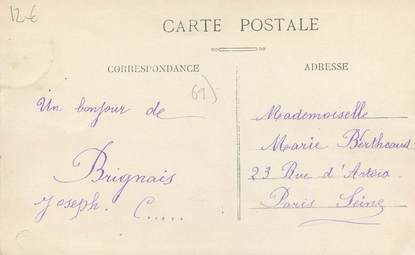 12€
CARTE POSTALE
CORRESPONDANCE
69)
Un bonjour de
Brignais
Joseph. C.....
ADRESSE
Mademoiselle
Marie Bertheaud
23 Rue d'Artois
Paris Seine